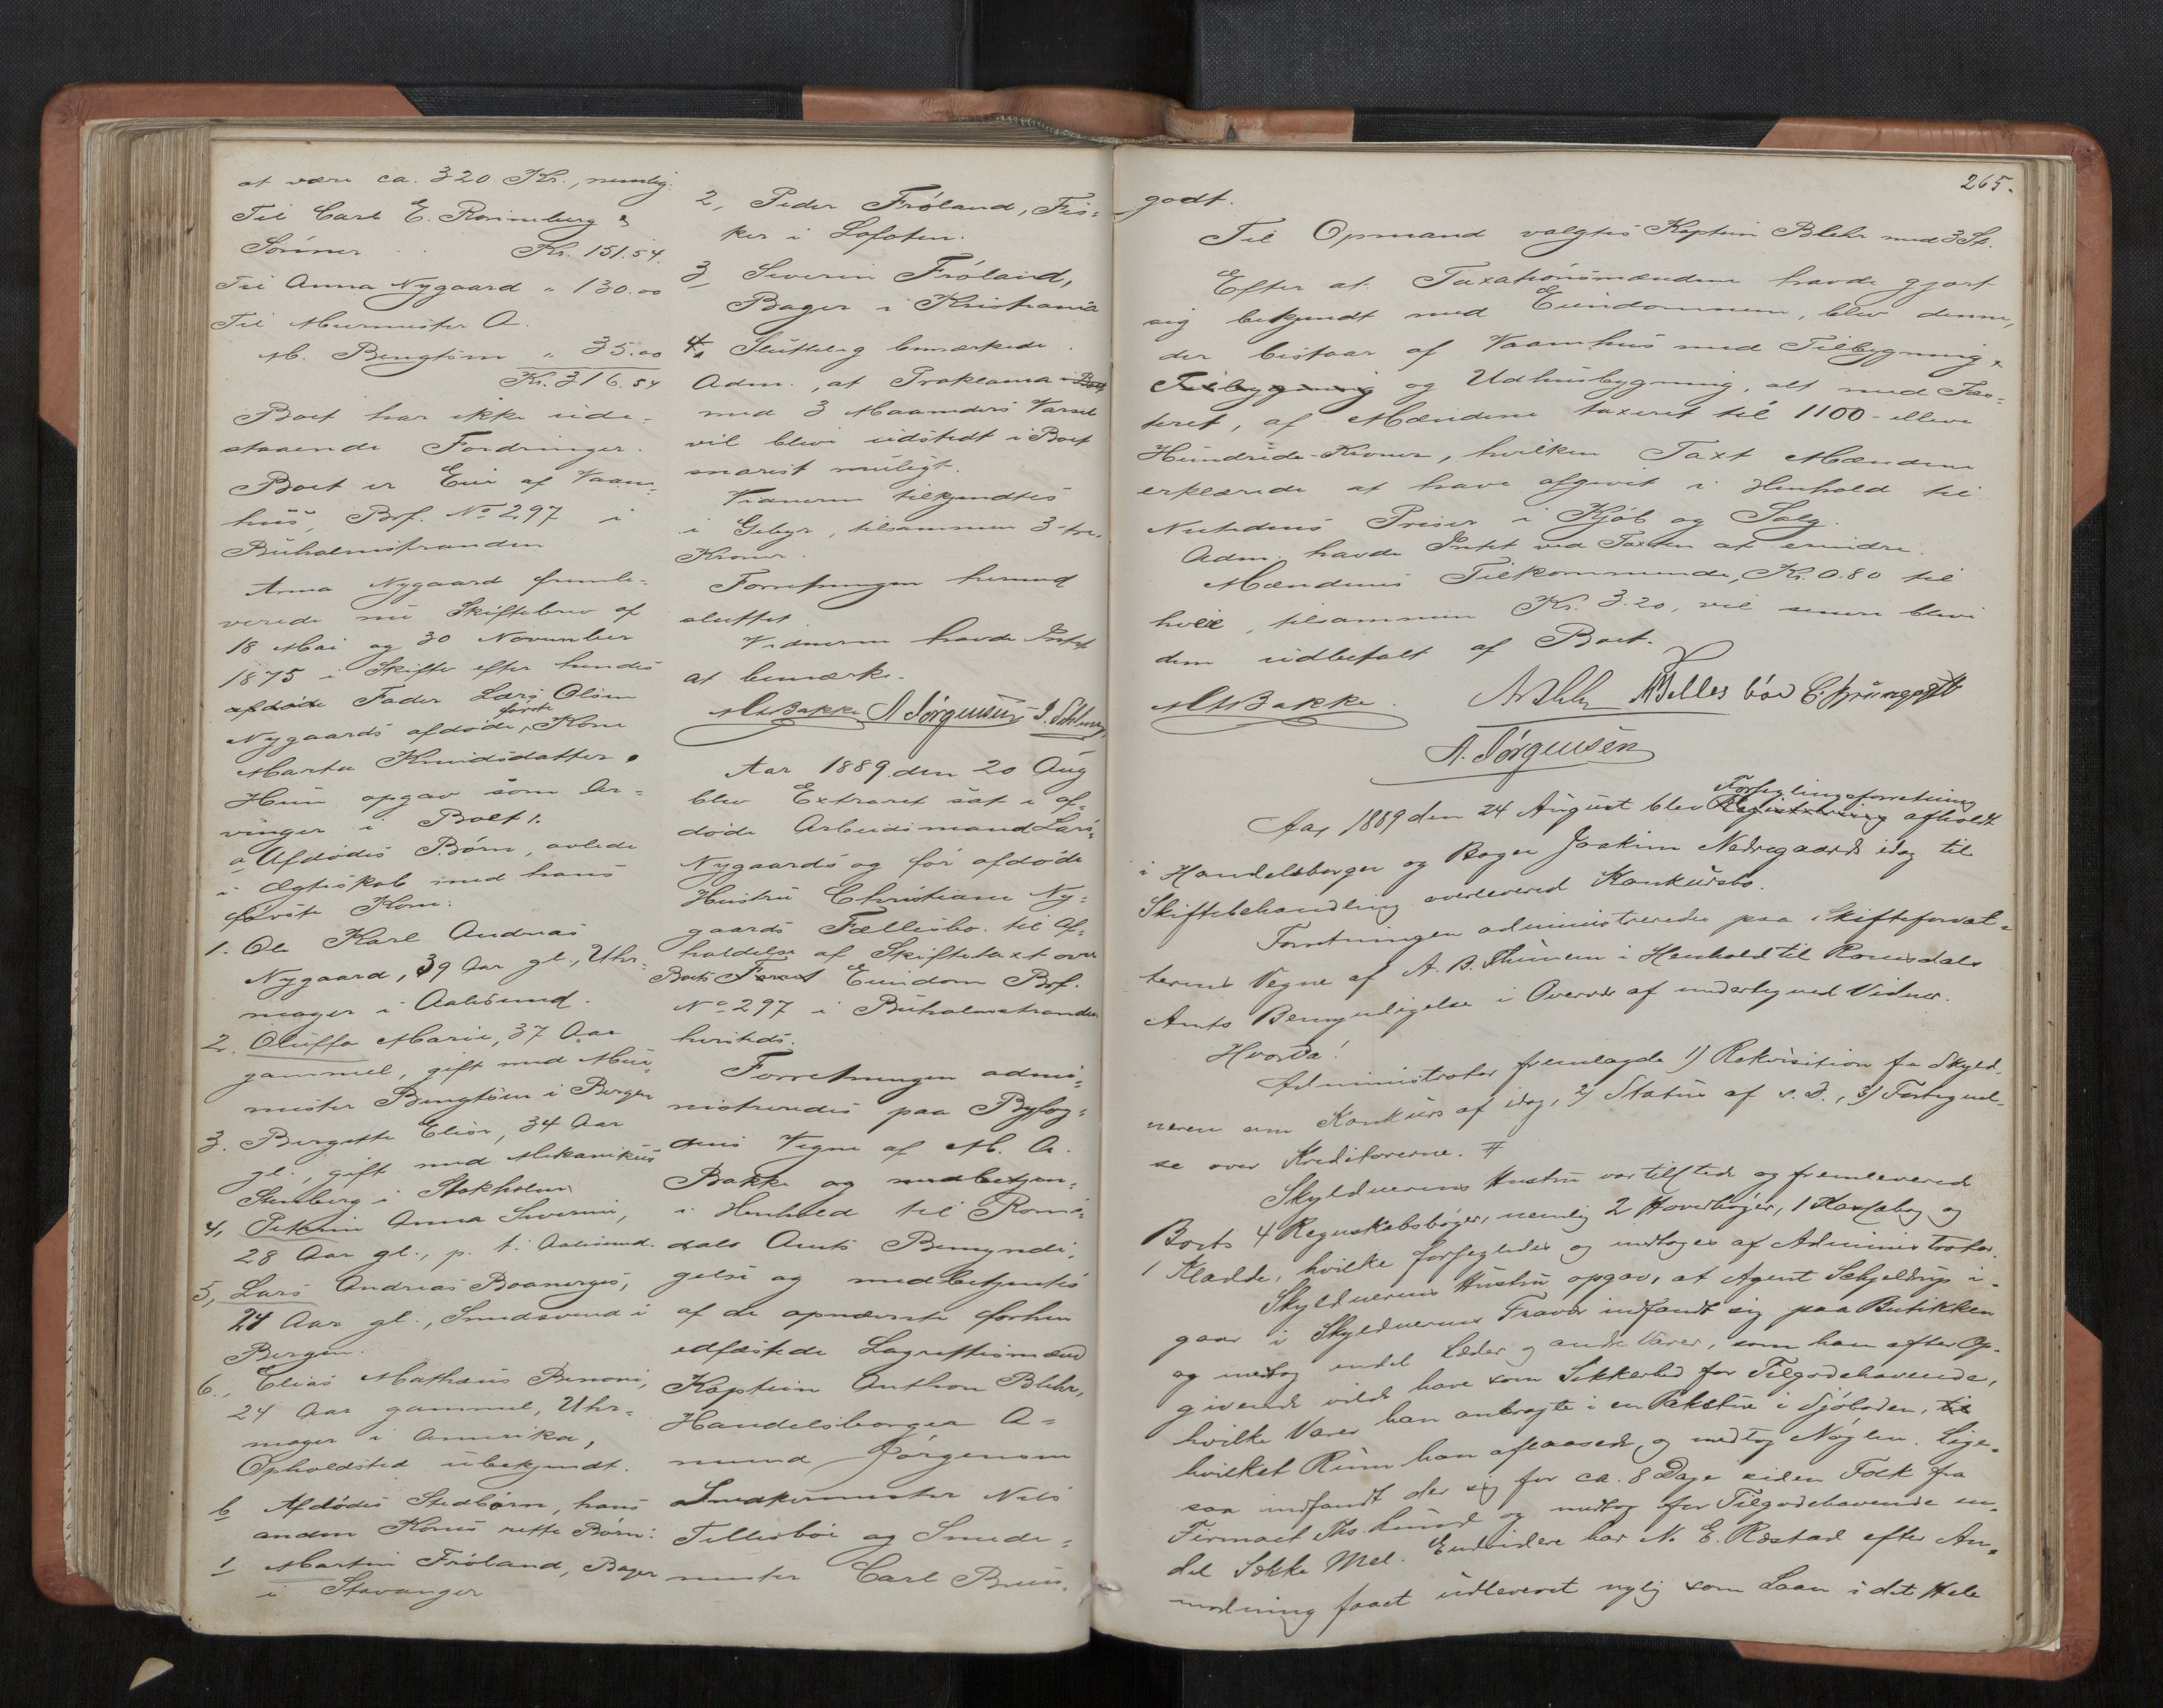 at være ca. 320 Kr., nemlig:
Til Carl E. Rønneberg &
Sønner Kr. 151.54.
Til Anna Nygaard " 130.00
Til Murmester A.
M. Bengtson " 35.00
Kr. 316.54
Boet har ikke ude-
staaende Fordringer.
Boet er Eier af Vaan-
hus, Brf. No 297 i
Buholmstranden
Anna Nygaard fremle-
verede nu Skiftebrev af
18 Mai og 30 November
1875 i Skifte efter hendes
afdøde Fader Lars Olsen
Nygaards afdøde første Kone
Marta Knudsdatter.
Hun opgav som Ar-
vinger i Boet:
a Afdødes Børn, avlede
i Ægteskab med hans
første Kone:
1. Ole Karl Andreas
Nygaard, 39 Aar gl., Uhr-
mager i Aalesund.
2. Oluffa Marie, 37 Aar
gammel, gift med Mur-
mester Bengtson i Bergen
3. Bergitte Elise, 34 Aar
gl., gift med Mekanikus
Stenberg i Stokholm
4, Petrine Anna Severine,
28 Aar gl., p. t. Aalesund.
5, Lars Andreas Boanerges,
27 Aar gl., Smedsvend i
Bergen.
6., Elias Mathæus Benoni,
24 Aar gammel, Uhr-
mager i Amerika,
Opholdsted ubekjendt.
b Afdødes Stedbørn, hans
anden Kones rette Børn:
1 Martin Frøland, Bager
i Stavanger
2, Peder Frøland, Fis-
ker i Lofoten.
3, Severin Frøland,
Bager i Kristiania
4, Sluttelig bemærkede
Adm., at Proklama i Boet
med 3 Maaneders Varsel
vil blive udstedt i Boet
snarest muligt.
Vidnerne tilkjendtes
i Gebyr, tilsammen 3-tre.
Kroner.
Forretningen hermed
sluttet
Vidnerne havde Intet
at bemærke.
MABakke A Jørgensen
Aar 1889 den 20 Aug
blev Extraret sat i af-
døde Arbeidsmand Lars
Nygaards og før afdøde
Hustru Christiane Ny-
gaards Fællesbo til Af-
holdelse af Skiftetaxt over
Boets Eiendom Brf.
No 297 i Buholmstranden
hersteds.
Forretningen admi-
nistreredes paa Byfog-
dens Vegne af M. A.
Bakke og medbetjen-
i Henhold til Roms-
dals Amts Bemyndi-
gelse og medbetjentes
af de opnævnte forhen
edfæstede Lagrettesmænd
Kaptein Anthon Blehr,
Handelsborger A-
mund Jørgensen
Snedkermester Nils
Tellesbøe og Smede-
mester Carl Brun-
265.
godt.
Til Opmand valgtes Kaptein Blehr med 3 St.
Efter at Taxationsmændene havde gjort
sig bekjendt med Eiendommen, blev denne,
der bestaar af Vaanhus med Tilbygning,
Tilbygning og Udhusbygning, alt med Fæs-
teret, af Mændene taxeret til 1100 - elleve
Hundrede - Kroner, hvilken Taxt Mændene
erklærede at have afgivet i Henhold til
Nutidens Priser i Kjøb og Salg.
Adm. havde Intet ved Taxten at erindre.
Mændenes Tilkommende, Kr. 0.80 til
hver, tilsammen Kr. 3.20, vil senere blive
dem udbetalt af Boet.
MABakke. ABlehr NTellesbøe
A. Jørgensen
Aar 1889 den 24 August blev Registrering Forseglingsforretning afholdt
i Handelsborger og Bager Joakim Nedregaards idag til
Skiftebehandling overleverede Konkursbo.
Forretningen administreredes paa Skifteforval-
terens Vegne af A. B. Thunem i Henhold til Romsdals
Amts Bemyndigelse i Overvær af undertegnede Vidner.
Hvorda!
Administrator fremlagde 1) Rekvisition fra Skyld-
neren om Konkurs af idag, 2) Status af s. D., 3) Fortegnel-
se over Kreditorerne. #
Skyldnerens Hustru var tilstede og fremleverede
Boets 4 Regnskabsbøger, nemlig 2 Hovedbøger, 1 Kassabog og
1 Kladde, hvilke forsegledes og medtoges af Administrator.
Skyldnerens Hustru opgav, at Agent Schjeldrup i-
gaar i Skyldnerens Fravær indfandt sig paa Butikken
og medtog endel Læder og andre Varer, som han efter Op-
givende vilde have som Sikkerhed for Tilgodehavende,
hvilke Varer han anbragte i en Pakstue i Sjøboden,
hvilket Rum han aflaasede og medtog Nøglen. Lige-
saa indfandt der sig for ca. 8 Dage siden Folk fra
Firmaet Ths. Lund og medtog for Tilgodehavende en-
del Sække Mel. Endvidere har N. E. Røstad efter An-
modning faaet udleveret nylig som Laan i det Hele